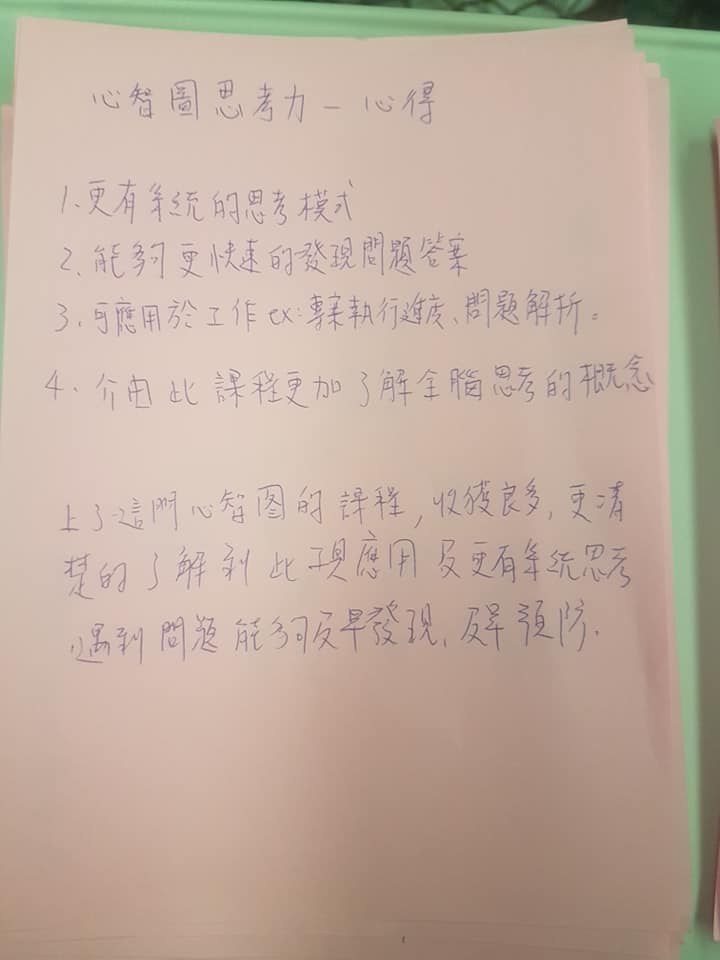 心智圖思考力－心得
1、更有系統的思考模式
2、能夠更快速的發現問題答案
3、可應用於工作ex:專案執行進度、問題解析。
4、介由此課程更加了解全腦思考的概念
上了這門心智图的課程,收獲良多,更清
楚的了解到此工具應用及更有系統思考
遇到問題能夠及早發現、及早預防.